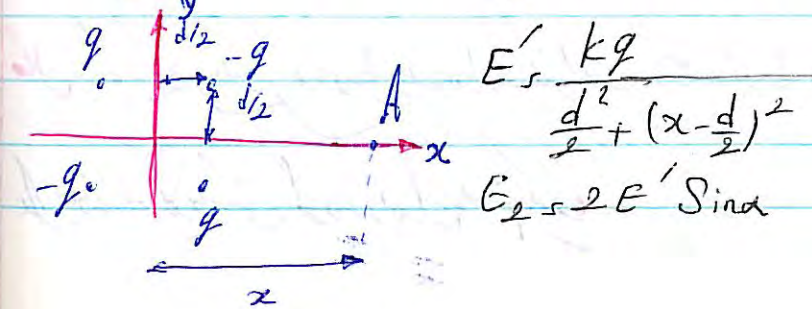 y
q
d/2
-q
d/2
A
x
-q
q
x
E' = kq / (d²/2 + (x - d/2)²)
E₂ = 2E' Sinα